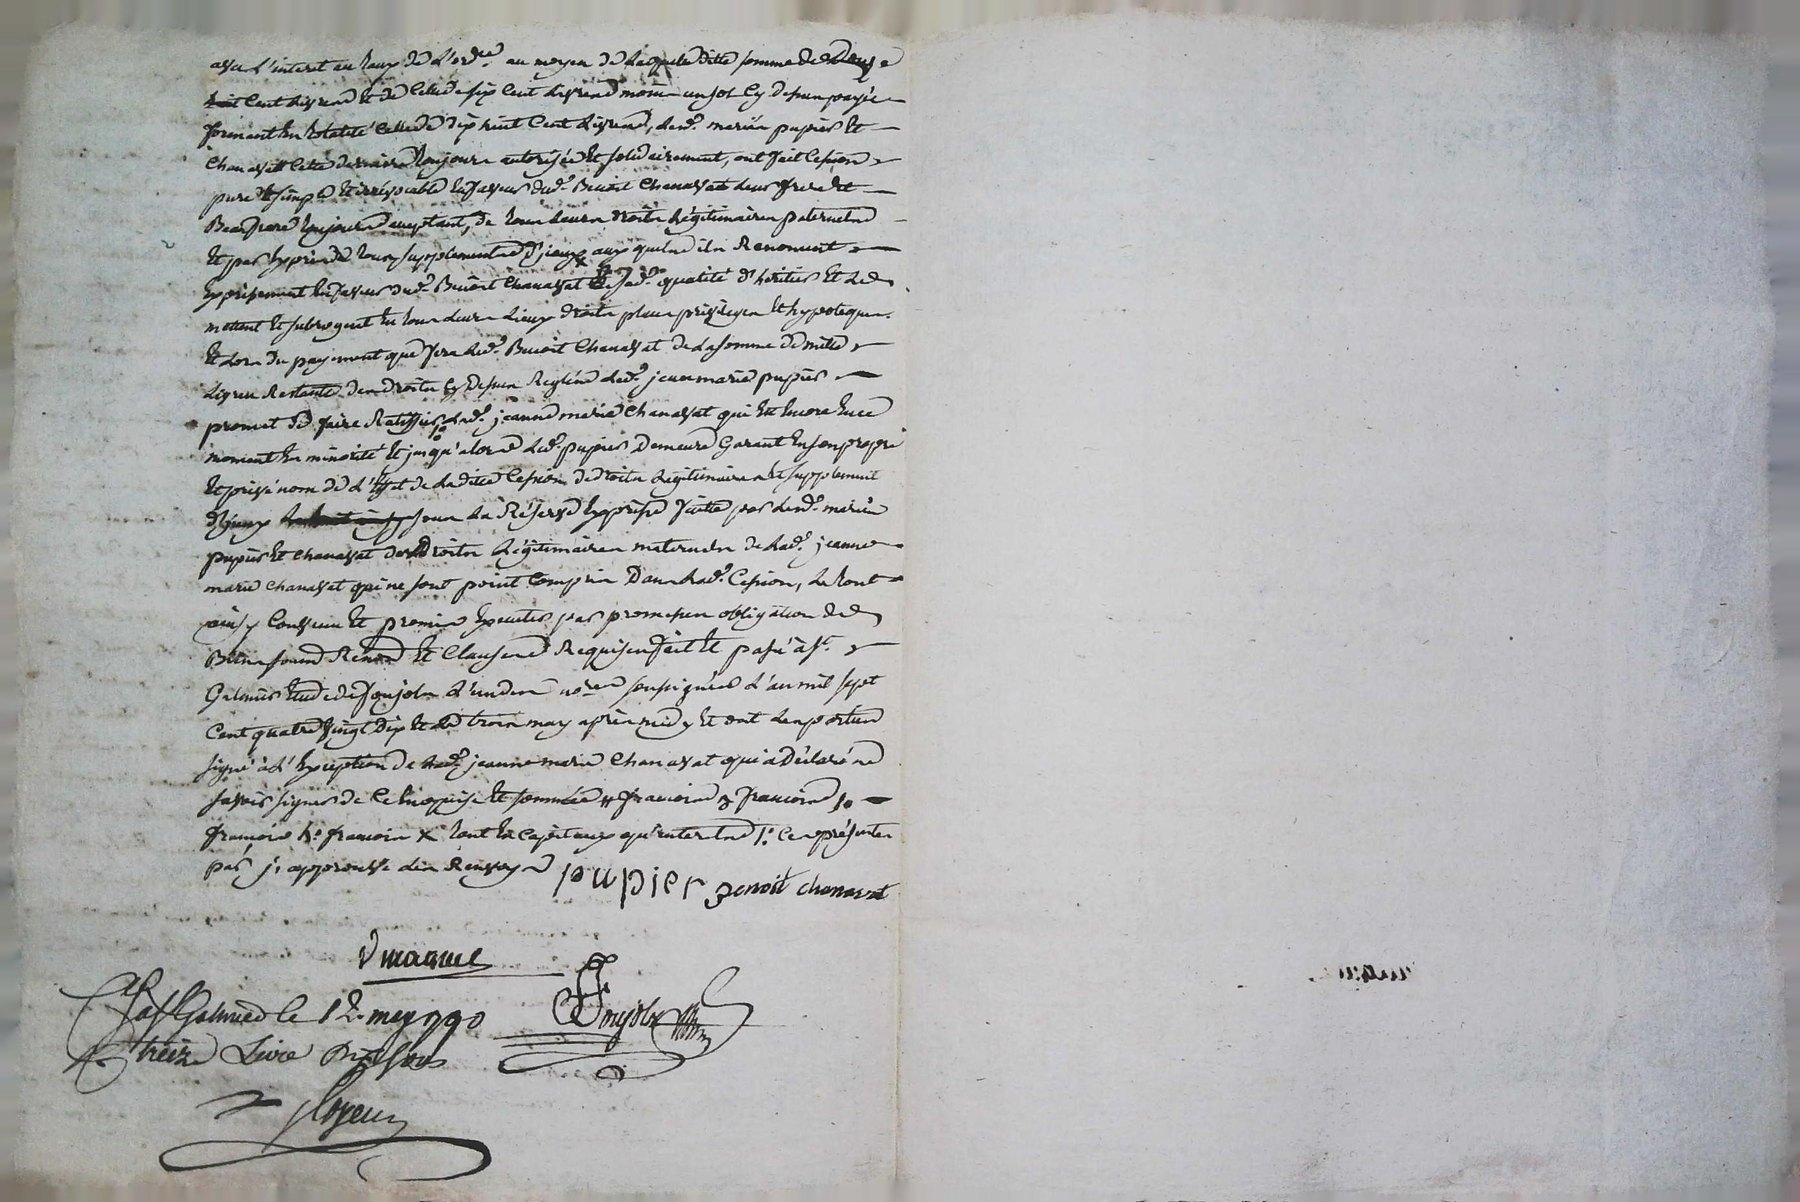 avec l'interet au taux de l'ord.ce au moyen de laquelle ditte somme de douze
cent livres et de celle de six cent livres moins un sol cy dessus payée
formant en totalité celle de dix huit cent livres, lesd. mariés pupier et
Chanavat cette derniere toujours autorisée et solidairement, ont fait cession
pure et simple et irrévocable en faveur dud. Benoit Chanavat leur frere et
Beaufrere toujours acceptant, de tous leurs droits légitimaires paternels
et par exprès de tous supplements d'jceux aux quels ils Renoncent
expressement en faveur dud. Benoit Chanavat en sad. qualité d'héritier et le
mettent et subrogent en tous leurs lieux droits place privileges et hypoteques.
et lors du payement que fera led. Benoit Chanavat de la somme de mille
livres Restante des droits cy dessus Reglés led. jean marie pupier
promet de faire Ratiffier lad. jeanne marie Chanavat qui est encore en ce
moment en minorité et jusqu'alors led. pupier demeure garant en son propre
et privé nom de l'effet de ladite cession de droits légitimaires et supplement
d'jceux sous la Réserve expresse faitte par lesd. mariés
pupier et Chanavat des droits légitimaires maternels de lad. jeanne
marie Chanavat qui ne sont point compris dans lad. Cession, le tout
ainsy convenu et promis executer par promesses obligation de
Biens soumis Renon et Clauses Requises fait et passé à st.
Galmier Etude de foujols l'un des no.res soussignés l'an mil sept
cent quatre vingt dix et le trois may après midy et ont les parties
signé à l'exception de lad. jeanne marie Chanavat qui a déclaré ne
savoir signer de ce enquise et sommée # francoise 3 francoise
francoise francoise x tant en capitaux qu'interets ce présentes
par j. approuvé les Renvoys
pupier Benoit chanavat
a St Galmier le 12 may 790
treize livre sous